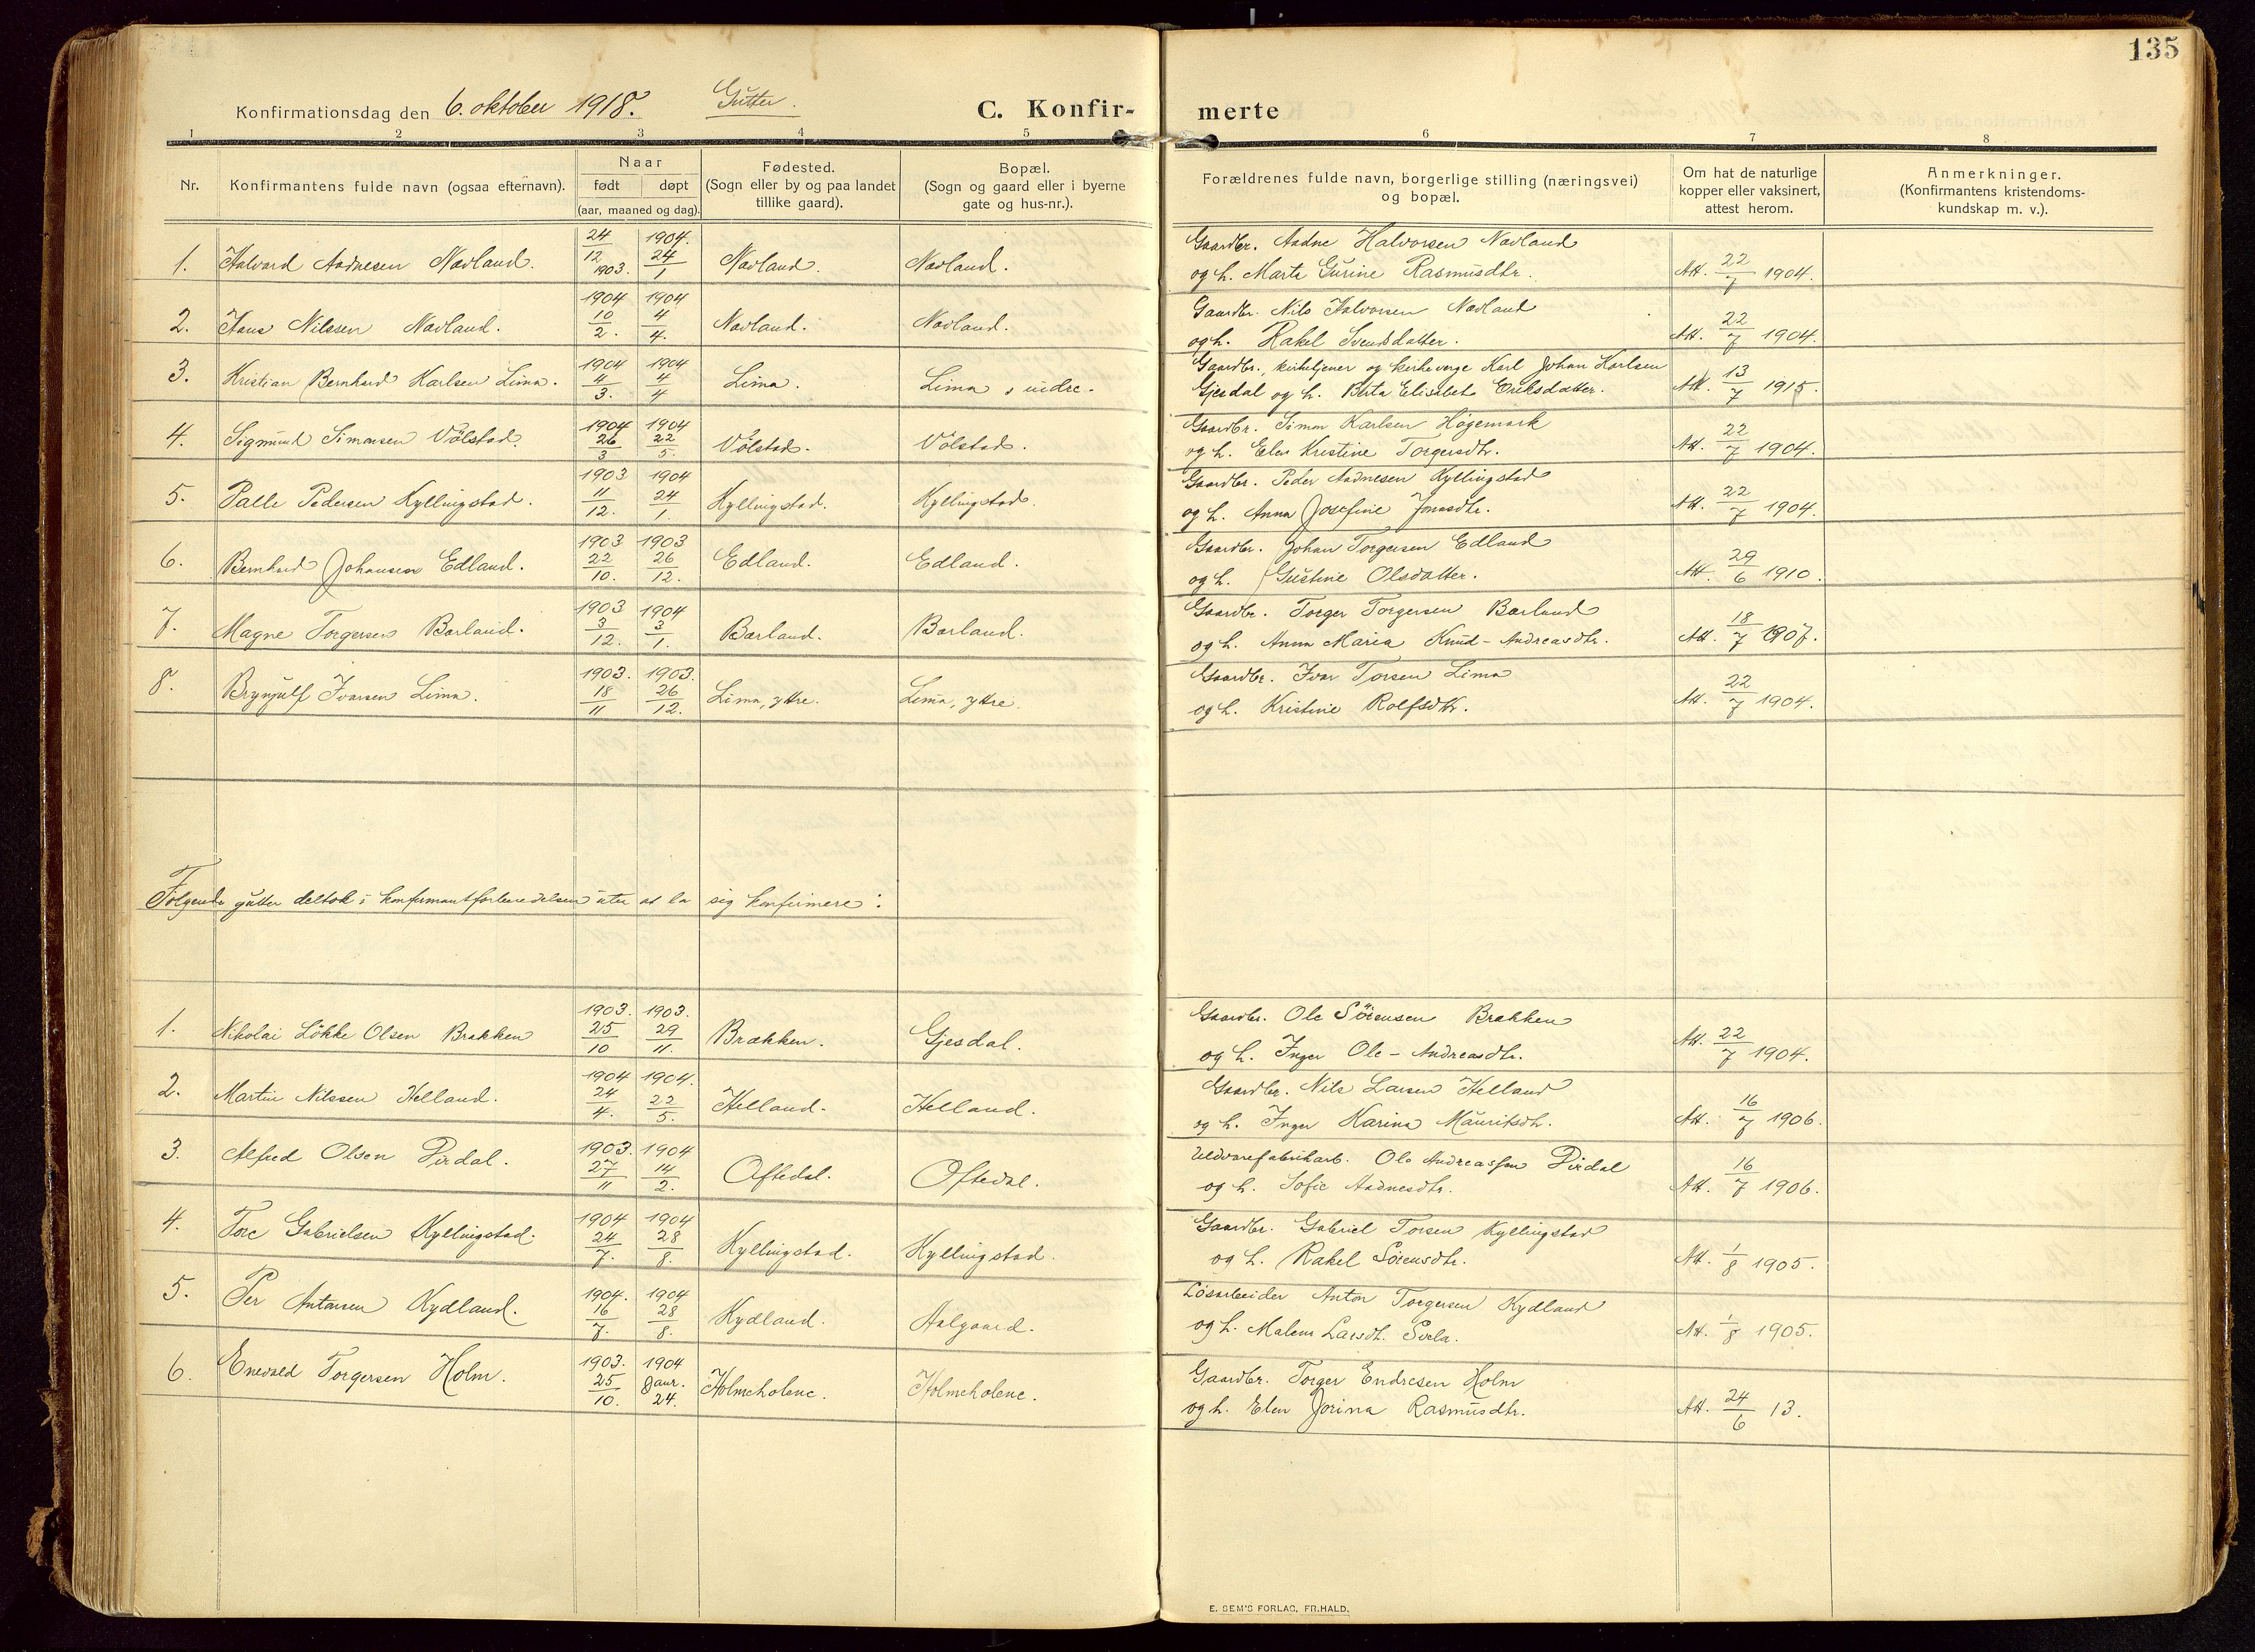 135
Konfirmationsdag den 6. oktober 1918. Gutter. C. Konfir- merte
1 2 3 4 5 6 7 8
Nr. Konfirmantens fulde navn (ogsaa efternavn). Naar født døpt (aar, maaned og dag). Fødested. (Sogn eller by og paa landet tillike gaard). Bopæl. (Sogn og gaard eller i byerne gate og hus-nr.). Forældrenes fulde navn, borgerlige stilling (næringsvei) og bopæl. Om hat de naturlige kopper eller vaksinert, attest herom. Anmerkninger. (Konfirmantens kristendoms- kundskap m. v.).
1. Halvard Aadnesen Navland. 24/12 1903. 1904. 24/1 Navland. Navland. Gaardbr. Aadne Halvorsen Navland og h. Marta Gurine Rasmusdtr. Att. 22/7 1904.
2. Hans Nilssen Navland. 1904 10/2. 1904 4/4. Navland. Navland. Gaardbr. Nils Halvorsen Navland og h. Rakel Svendsdatter. Att. 22/7 1904.
3. Kristian Bernhard Karlsen Lima. 1904 4/3. 1904 4/4 Lima. Lima, indre. Gaardbr., kirketjener og kirkeverge Karl Johan Karlsen Gjesdal og h. Berta Elisabet Eriksdatter. Att. 13/7 1915.
4. Sigmund Simonsen Völstad. 1904 26/3 1904 22/5. Völstad. Völstad. Gaardbr. Simon Karlsen Høgemark og h. Elen Kristine Torgersdtr. Att. 22/7 1904.
5. Palle Pedersen Kyllingstad. 1903 11/12. 1904 24/1. Kyllingstad. Kyllingstad. Gaardbr. Peder Aadnesen Kyllingstad og h. Anna Josefine Jonasdtr. Att. 22/7 1904.
6. Bernhard Johansen Edland. 1903 22/10. 1903 26/12. Edland. Edland. Gaardbr. Johan Torgersen Edland og h. Gustine Olsdatter. Att. 29/6 1910.
7. Magne Torgersen Bærland. 1903 3/12. 1904 3/1. Bærland. Bærland. Gaardbr. Torger Torgersen Bærland og h. Anna Maria Knud-Andreasdtr. Att. 18/7 1907.
8. Brynjulf Ivarsen Lima. 1903. 18/11 1903. 26/12. Lima, ytre. Lima, ytre. Gaardbr. Ivar Torsen Lima og h. Kristine Rolfsdtr. Att. 22/7 1904.
Følgende gutter deltok i konfirmantforberedelsen uten at la sig konfirmere:
1. Nikolai Lökke Olsen Brækken 1903. 25/10 1903. 29/11. Brækken. Gjesdal. Gaardbr. Ole Sörensen Brækken og h. Inger Ole-Andreasdtr. Att. 22/7 1904.
2. Martin Nilssen Helland. 1904 24/4. 1904. 22/5. Helland. Helland. Gaardbr. Nils Larsen Helland og h. Inger Karina Mauritsdtr. Att. 16/7 1906.
3. Alfred Olsen Dirdal. 1903. 27/11 1904 14/2. Oftedal. Oftedal. Uldvarefabrikarb. Ole Andreassen Dirdal og h. Sofie Aadnesdtr. Att. 16/7 1906.
4. Tore Gabrielsen Kyllingstad. 1904 24/7. 1904 28/8. Kyllingstad. Kyllingstad. Gaardbr. Gabriel Torsen Kyllingstad og h. Rakel Sørensdtr. Att. 1/8 1905.
5. Per Antonsen Kydland. 1904. 16/7. 1904 28/8. Kydland. Aalgaard. Løsarbeider Anton Torgersen Kydland og h. Malene Larsdt. Att. 1/8 1905.
6. Enevald Torgersen Holm. 1903. 25/10. 1904 Jan. 24. Holmeholene. Holmeholene. Gaardbr. Torger Endresen Holm og h. Elen Jorina Rasmusdtr. Att. 24/6 13.
E. SEM'S FORLAG, FR.HALD.